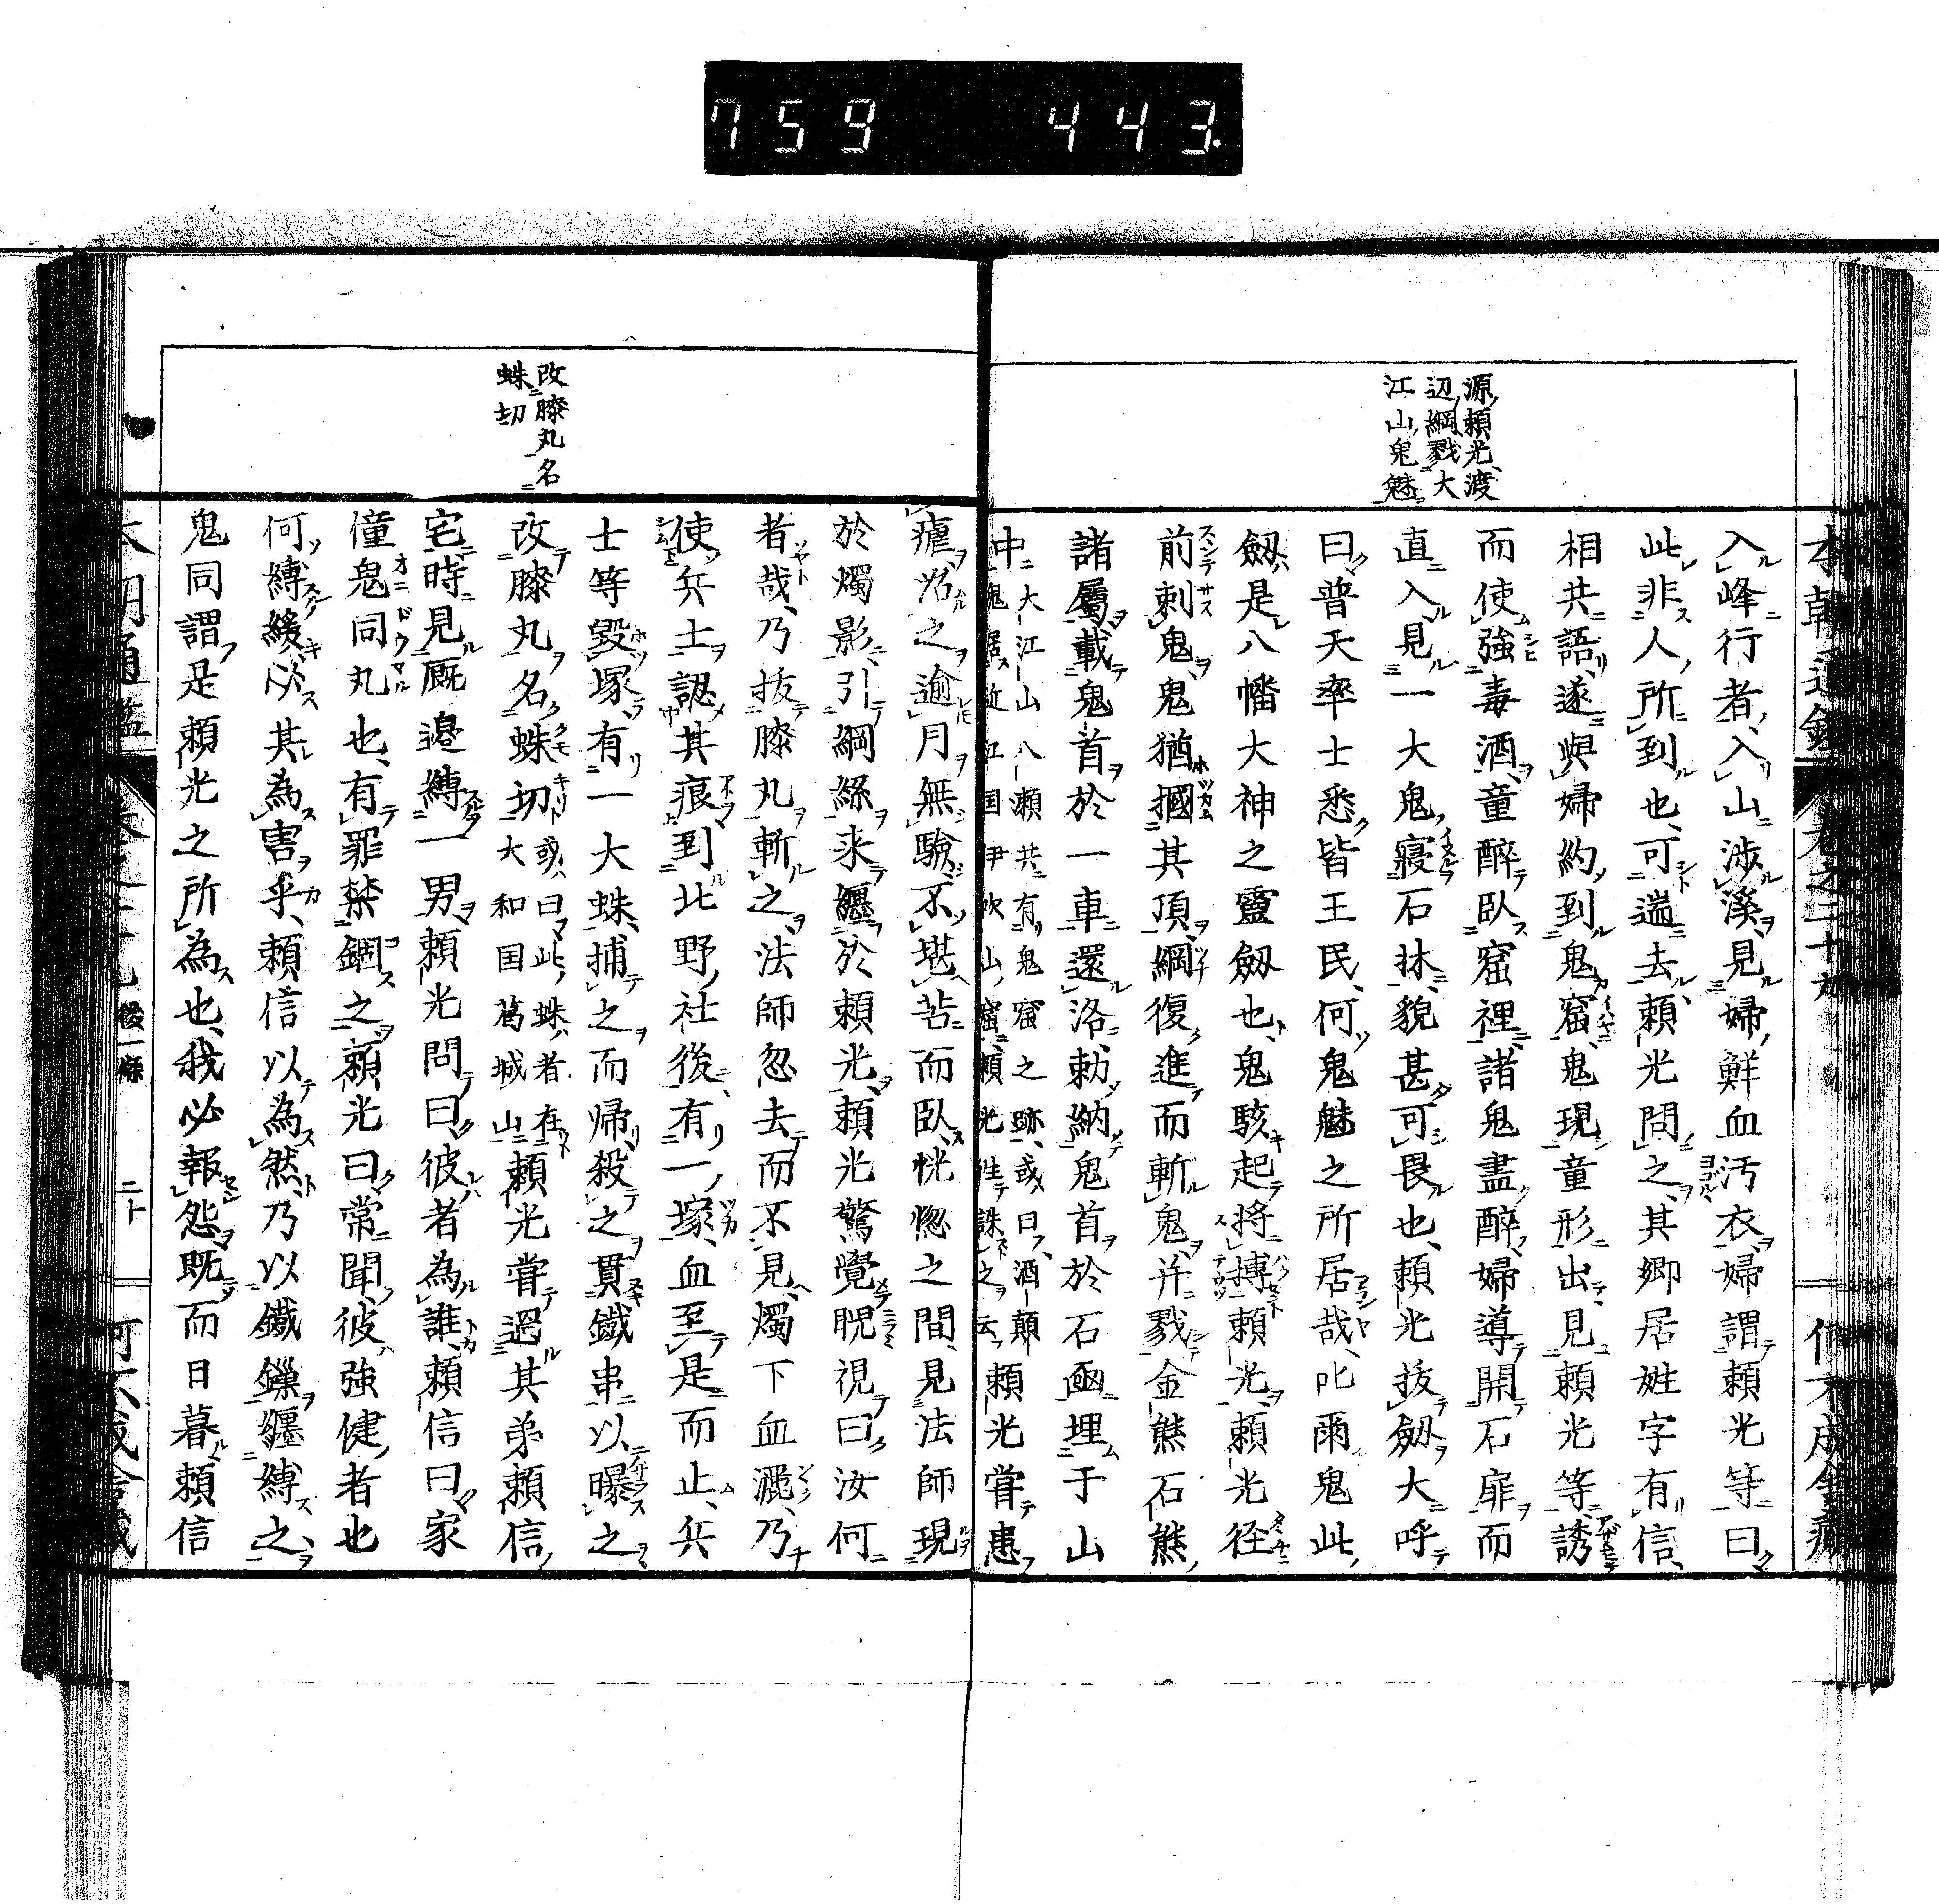 759 443.
源頼光渡
辺綱戮大
江山鬼魅
入峰行者入山渉溪見婦鮮血汚衣婦謂頼光等曰
此非人所到也可遄去頼光問之其郷居姓字有信
相共語遂與婦約到鬼窟鬼現童形出見頼光等誘
而使強毒酒童醉臥窟裡諸鬼盡醉婦導開石扉而
直入見一大鬼寢石牀貌甚可畏也頼光抜劔大呼
曰普天率士悉皆王民何鬼魅之所居哉叱爾鬼此
劔是八幡大神之靈劔也鬼駭起将搏頼光頼光径
前刺鬼鬼猶摑其頂綱復進而斬鬼并戮金熊石熊
諸屬載鬼首於一車還洛勅納鬼首於石凾埋于山
中大江山八瀬共有鬼窟之跡或曰酒顛
鬼居近江国伊吹山窟頼光往誅之云頼光嘗患
瘧治之逾月無驗不堪苦而臥恍惚之間見法師現
於燭影引綱絲来纒於頼光頼光驚覺睨視曰汝何
者哉乃抜膝丸斬之法師忽去而不見燭下血灑乃
使兵士認其痕到北野社後有一塚血至是而止兵
士等毀塚有一大蛛捕之而帰殺之貫鐵串以曝之
改膝丸名蛛切或曰此蛛者在
大和国葛城山頼光嘗過其弟頼信
宅時見厩邉縛一男頼光問曰彼者為誰頼信曰家
僮鬼同丸也有罪禁錮之頼光曰常聞彼強健者也
何縛緩以其為害乎頼信以為然乃以鐵鏁纒縛之
鬼同謂是頼光之所為也我必報怨既而日暮頼信
改膝丸名
蛛切
後一條